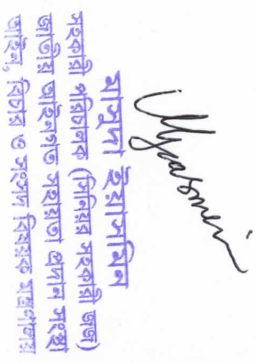 মাসুদা ইয়াসমিন
সহকারী পরিচালক (সিনিয়র সহকারী জজ)
জাতীয় আইনগত সহায়তা প্রদান সংস্থা
আইন, বিচার ও সংসদ বিষয়ক মন্ত্রণালয়